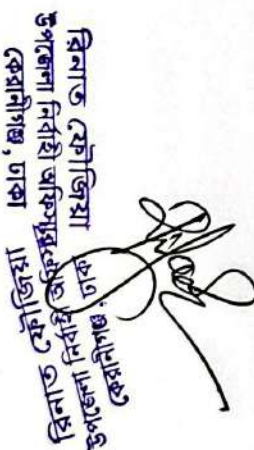 রিনাত ফৌজিয়া
উপজেলা নির্বাহী অফিসার
কেরানীগঞ্জ, ঢাকা
রিনাত ফৌজিয়া
উপজেলা নির্বাহী